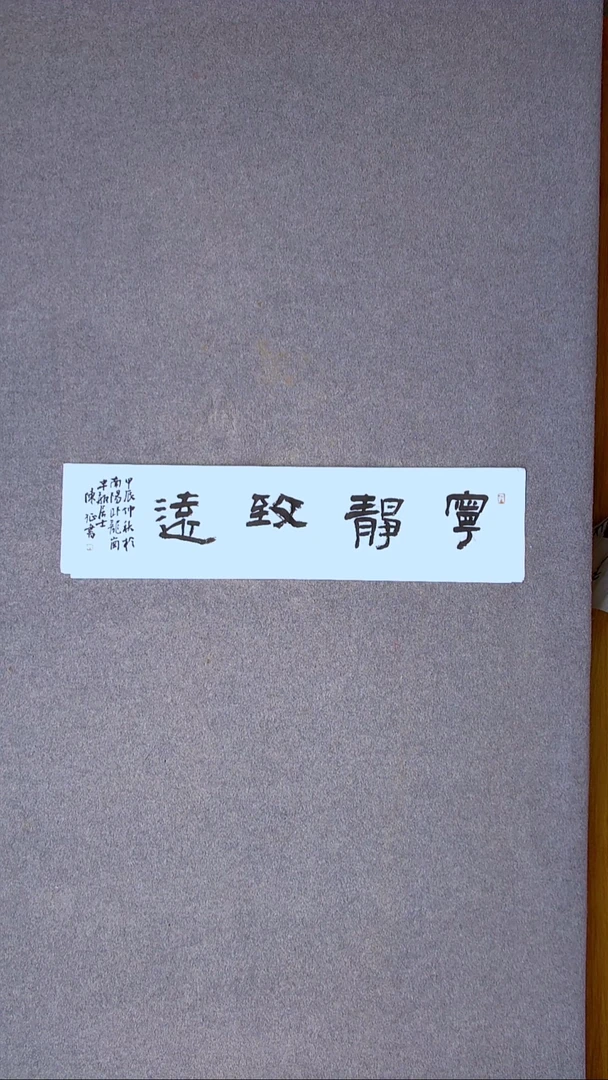 寧靜致遠
甲辰仲秋於
南陽卧龍崗
半瓶居士
陳征書